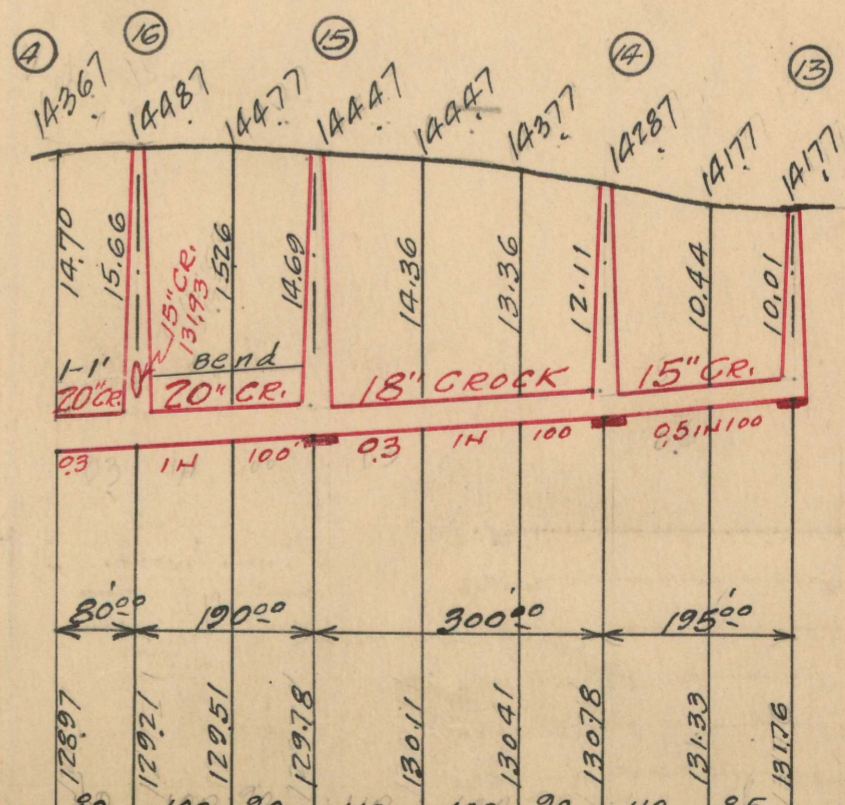 4 16 15 14 13
143.67 144.87 144.77 144.47 144.47 143.77 142.87 141.77 141.77
14.70 15.66 15.26 14.69 14.36 13.36 12.11 10.44 10.01
15" CR.
131.93
1-1'
20" CR.
Bend
20" CR.
18" CROCK
15" CR.
0.3 IN 100' 0.3 IN 100 0.5 IN 100
80'00 190'00 300'00 195'00
128.97 129.21 129.51 129.78 130.11 130.41 130.78 131.33 131.76